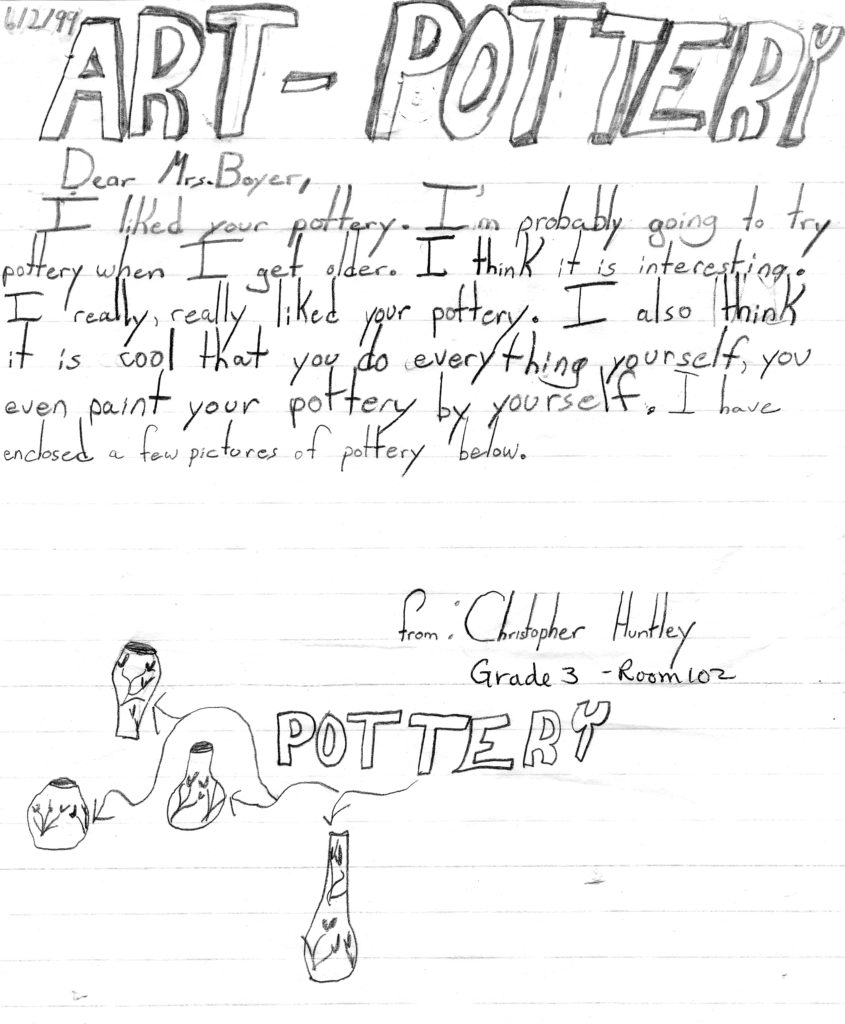 6/2/99
ART-POTTERY
Dear Mrs. Boyer,
I liked your pottery. I'm probably going to try
pottery when I get older. I think it is interesting.
I really, really liked your pottery. I also think
it is cool that you do everything yourself, you
even paint your pottery by yourself. I have
enclosed a few pictures of pottery below.
from: Christopher Huntley
Grade 3 - Room 102
POTTERY